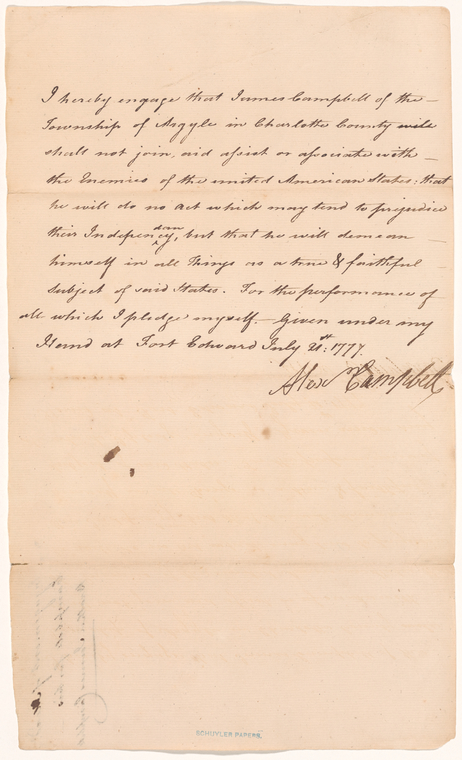 I hereby engage that James Campbell of the
Township of Argyle in Charlotte County will
shall not join, aid assist or associate with
the Enemies of the united American States; that
he will do no act which may tend to prejudice
their Indepen^dancy, but that he will demean
himself in all Things as a true & faithful
subject of said States. For the performance of
all which I pledge myself. — Given under my
Hand at Fort Edward July 21st: 1777.
Alexr Campbell
SCHUYLER PAPERS.